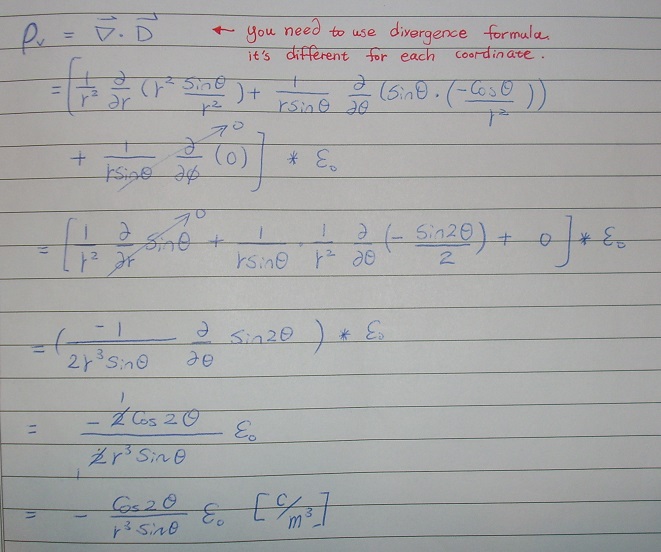 ρᵥ = ∇⃗ · D⃗ ← you need to use divergence formula.
it's different for each coordinate.
= [ 1/r² ∂/∂r (r² sinθ/r²) + 1/(r sinθ) ∂/∂θ (sinθ · (-cosθ/r²))
+ 1/(r sinθ) ∂/∂ϕ (0) ] * ε₀ 0
= [ 1/r² ∂/∂r sinθ 0 + 1/(r sinθ) · 1/r² ∂/∂θ (- sin2θ/2) + 0 ] * ε₀
= ( -1/(2r³ sinθ) ∂/∂θ sin2θ ) * ε₀
= - 2 cos2θ/(2 r³ sinθ) ε₀ 1 1
= - cos2θ/(r³ sinθ) ε₀ [C/m³]